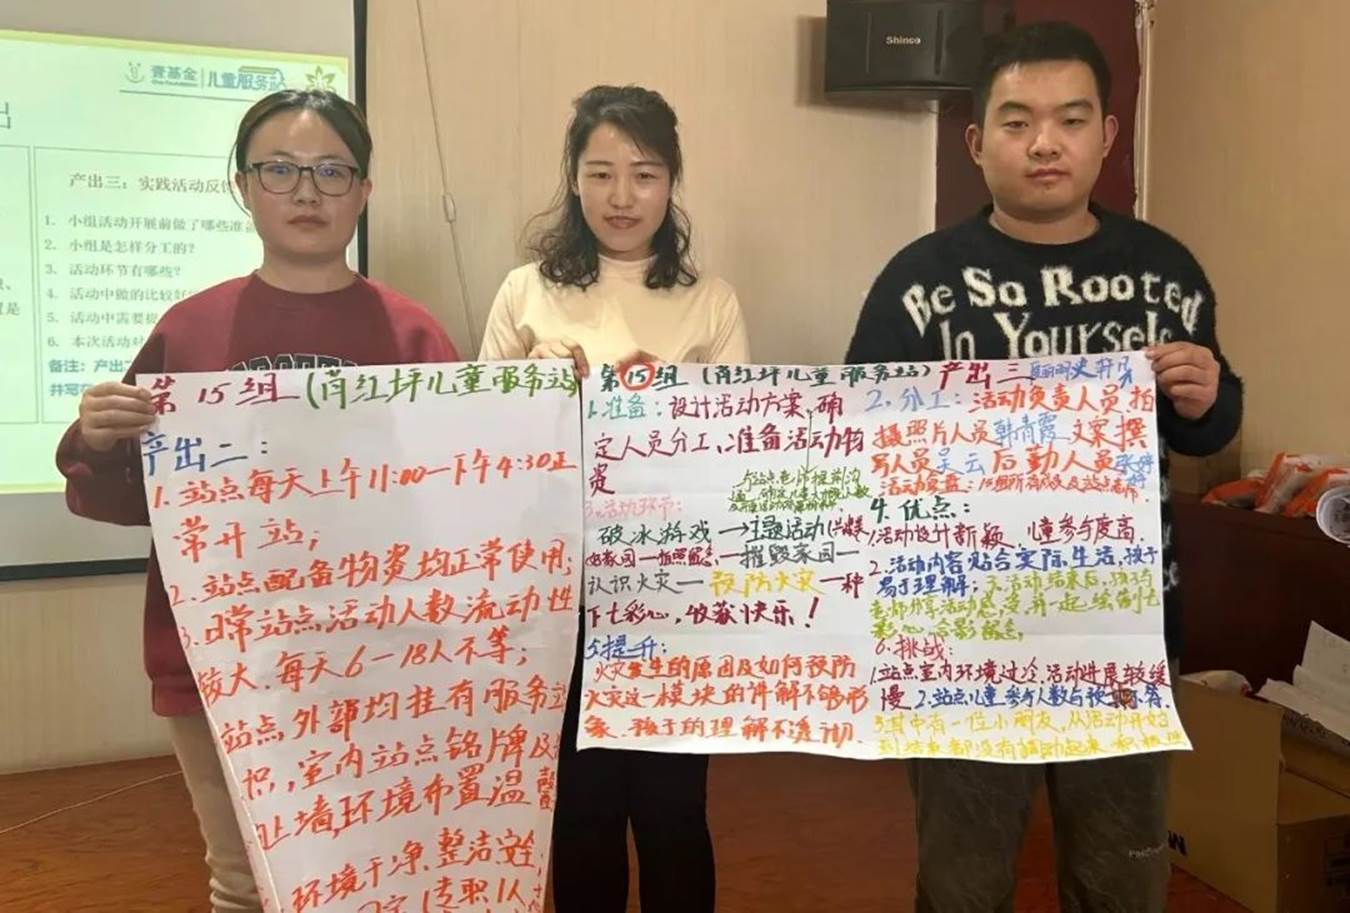 壹基金
儿童服务站
出
产出三：实践活动反馈
1. 小组活动开展前做了哪些准备
2. 小组是怎样分工的？
3. 活动环节有哪些？
4. 活动中做的比较好
5. 活动中需要提
6. 本次活动对
备注：产出二
并写在
Shinco
Be So Rooted
In Yourself
第15组（肖红坪儿童服务站
产出二：
1. 站点每天上午11:00一下午4:30正
常开站；
2. 站点配备物资均正常使用；
3. 日常站点活动人数流动性
较大、每天6一18人不等；
站点外部均挂有服务站
识，室内站点铭牌及
上墙，环境布置温馨
环境干净、整洁安全，
第15组（肖红坪儿童服务站）产出三
1. 准备：设计活动方案、确
定人员分工、准备活动物
资
3. 活动环节：
破冰游戏→主题活动（
好家园一拍照留念，一摧毁家园一
认识火灾一预防火灾一种
下七彩心，收获快乐！
5. 提升：
火灾发生的原因及如何预防
火灾这一模块的讲解不够形
象、孩子的理解不透彻．
2. 分工：活动负责人员、拍
摄照片人员韩青霞 文案撰
写人员吴云 后勤人员张婷婷
4. 优点：
1. 活动设计新颖、儿童参与度高．
2. 活动内容贴合实际生活，孩子
易于理解；3. 活动结束后，孩子与
老师分享活动感受并一起绘制七
彩心、合影留念；
6. 挑战：
1. 站点室内环境过冷、活动进展较缓
慢 2. 站点儿童参与人数与预期不符．
3. 其中有一位小朋友，从活动开始
到结束都没有